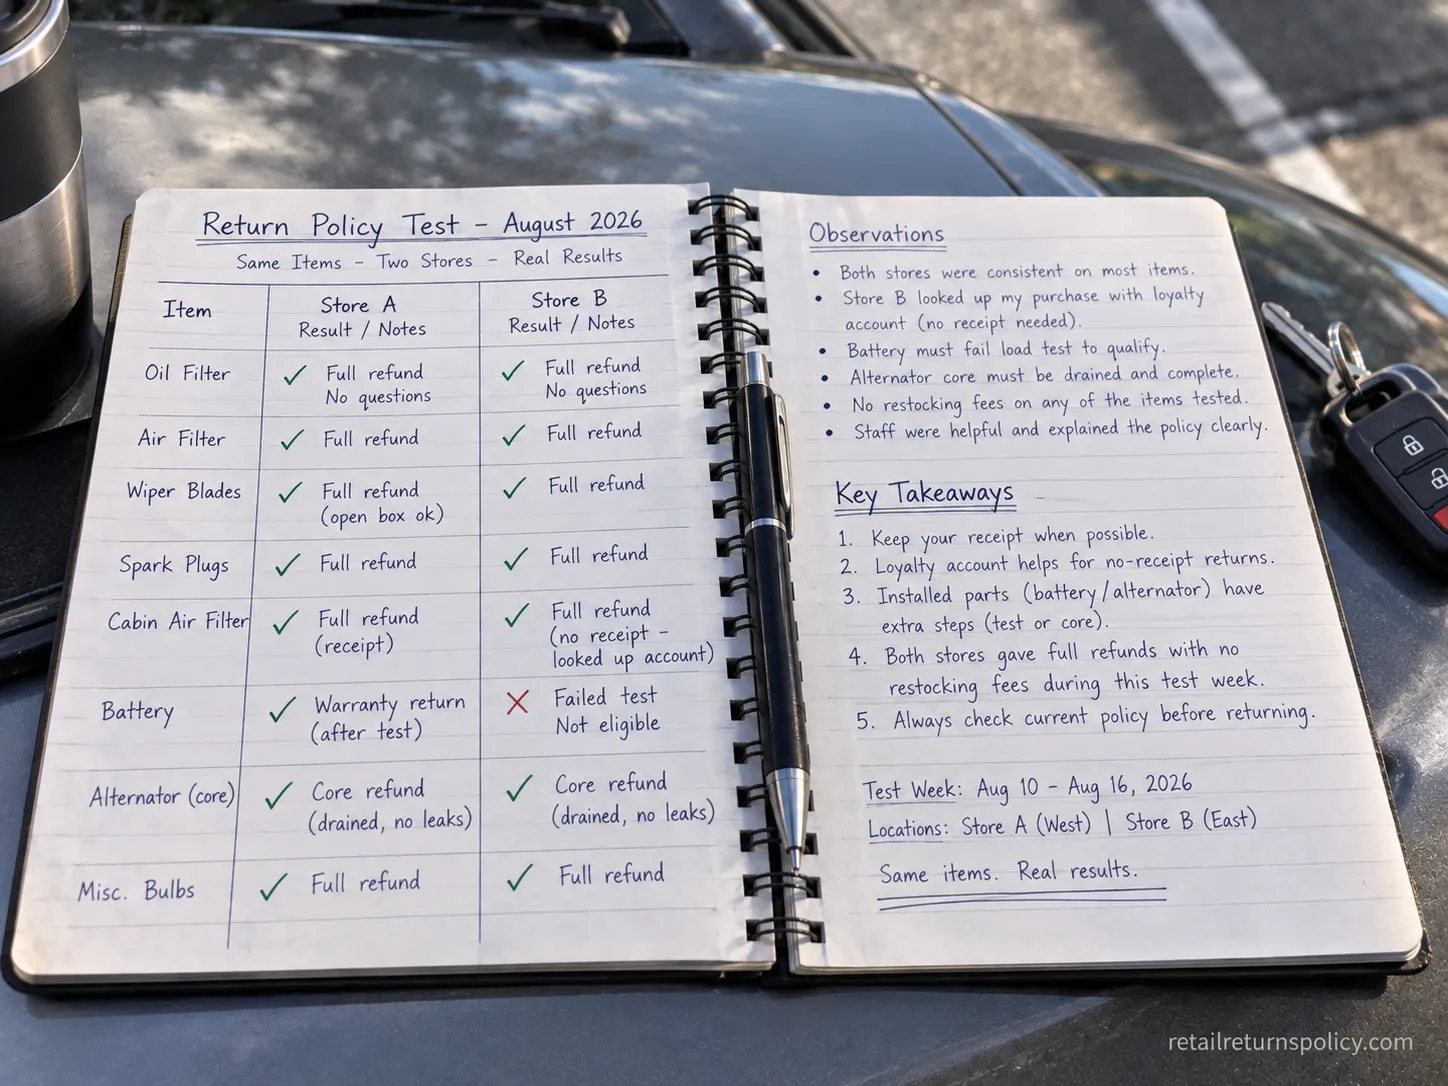 Return Policy Test – August 2026
Same Items – Two Stores – Real Results
Item
Store A
Result / Notes
Store B
Result / Notes
Oil Filter
✓ Full refund
No questions
✓ Full refund
No questions
Air Filter
✓ Full refund
✓ Full refund
Wiper Blades
✓ Full refund
(open box ok)
✓ Full refund
Spark Plugs
✓ Full refund
✓ Full refund
Cabin Air Filter
✓ Full refund
(receipt)
✓ Full refund
(no receipt –
looked up account)
Battery
✓ Warranty return
(after test)
✗ Failed test
Not eligible
Alternator (core)
✓ Core refund
(drained, no leaks)
✓ Core refund
(drained, no leaks)
Misc. Bulbs
✓ Full refund
✓ Full refund
Observations
• Both stores were consistent on most items.
• Store B looked up my purchase with loyalty
account (no receipt needed).
• Battery must fail load test to qualify.
• Alternator core must be drained and complete.
• No restocking fees on any of the items tested.
• Staff were helpful and explained the policy clearly.
Key Takeaways
1. Keep your receipt when possible.
2. Loyalty account helps for no-receipt returns.
3. Installed parts (battery/alternator) have
extra steps (test or core).
4. Both stores gave full refunds with no
restocking fees during this test week.
5. Always check current policy before returning.
Test Week: Aug 10 – Aug 16, 2026
Locations: Store A (West) | Store B (East)
Same items. Real results.
retailreturnspolicy.com